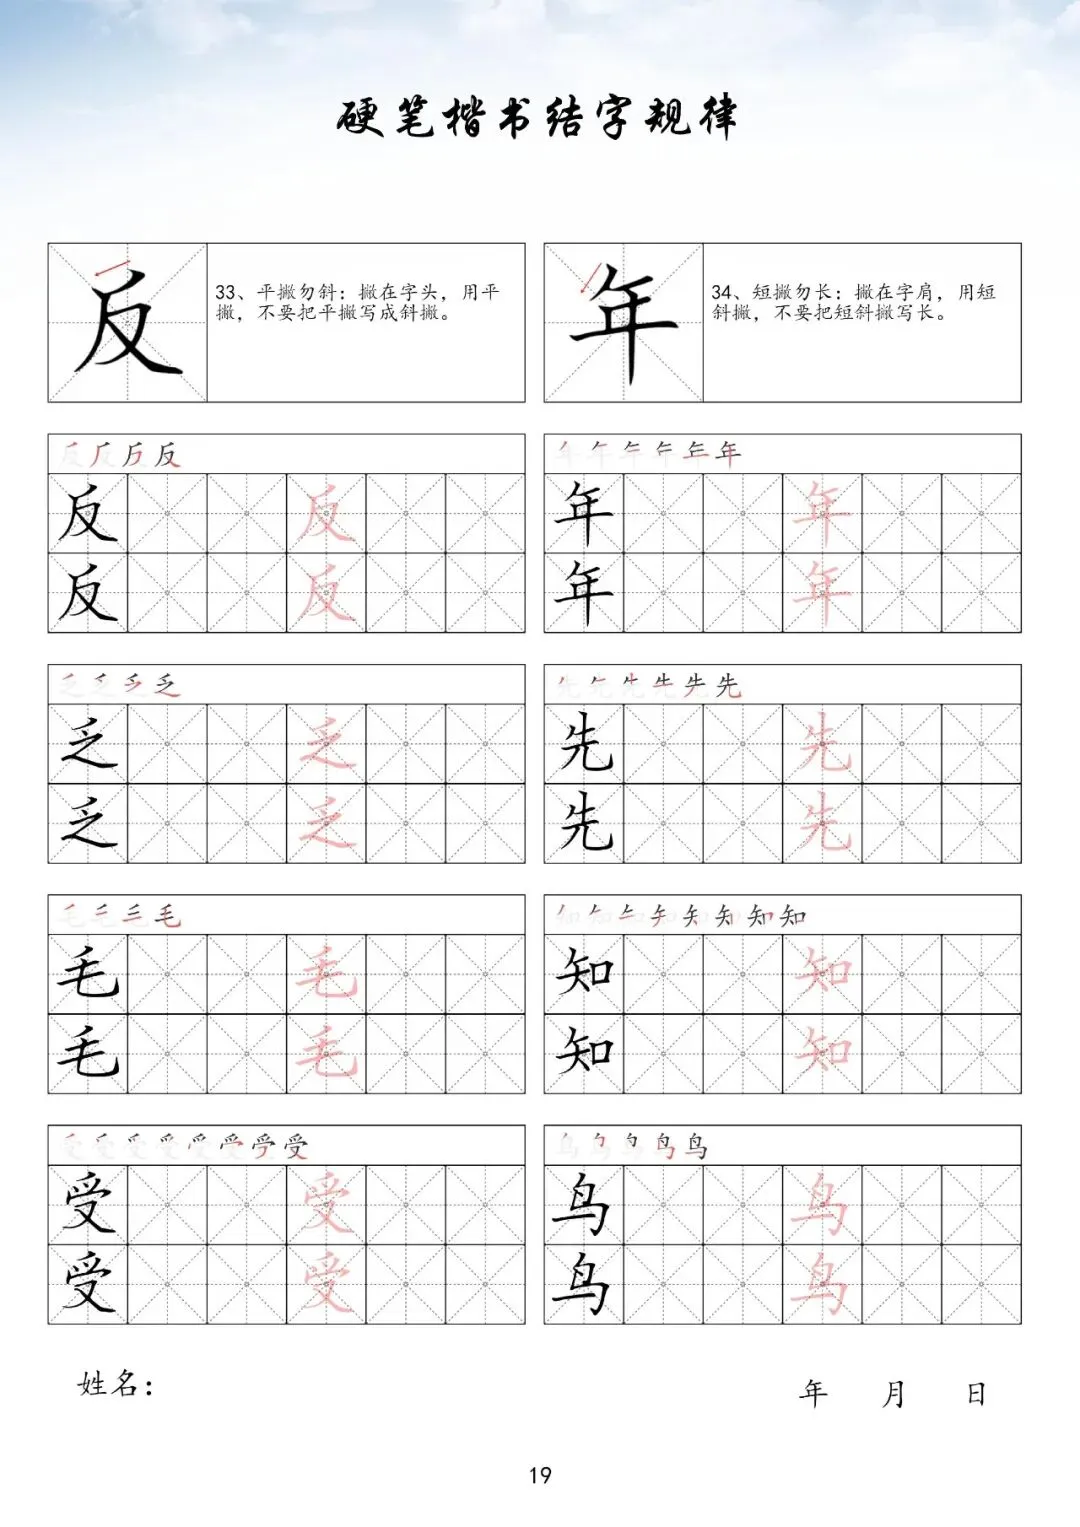 硬笔楷书结字规律
反
33、平撇勿斜：撇在字头，用平
撇，不要把平撇写成斜撇。
年
34、短撇勿长：撇在字肩，用短
斜撇，不要把短斜撇写长。
反反反反
反 反
反 反
年年年年年年
年 年
年 年
乏乏乏乏
乏 乏
乏 乏
先先先先先先
先 先
先 先
毛毛毛毛
毛 毛
毛 毛
知知知知知知知知
知 知
知 知
受受受受受受受受
受 受
受 受
鸟鸟鸟鸟鸟
鸟 鸟
鸟 鸟
姓名：
年 月 日
19